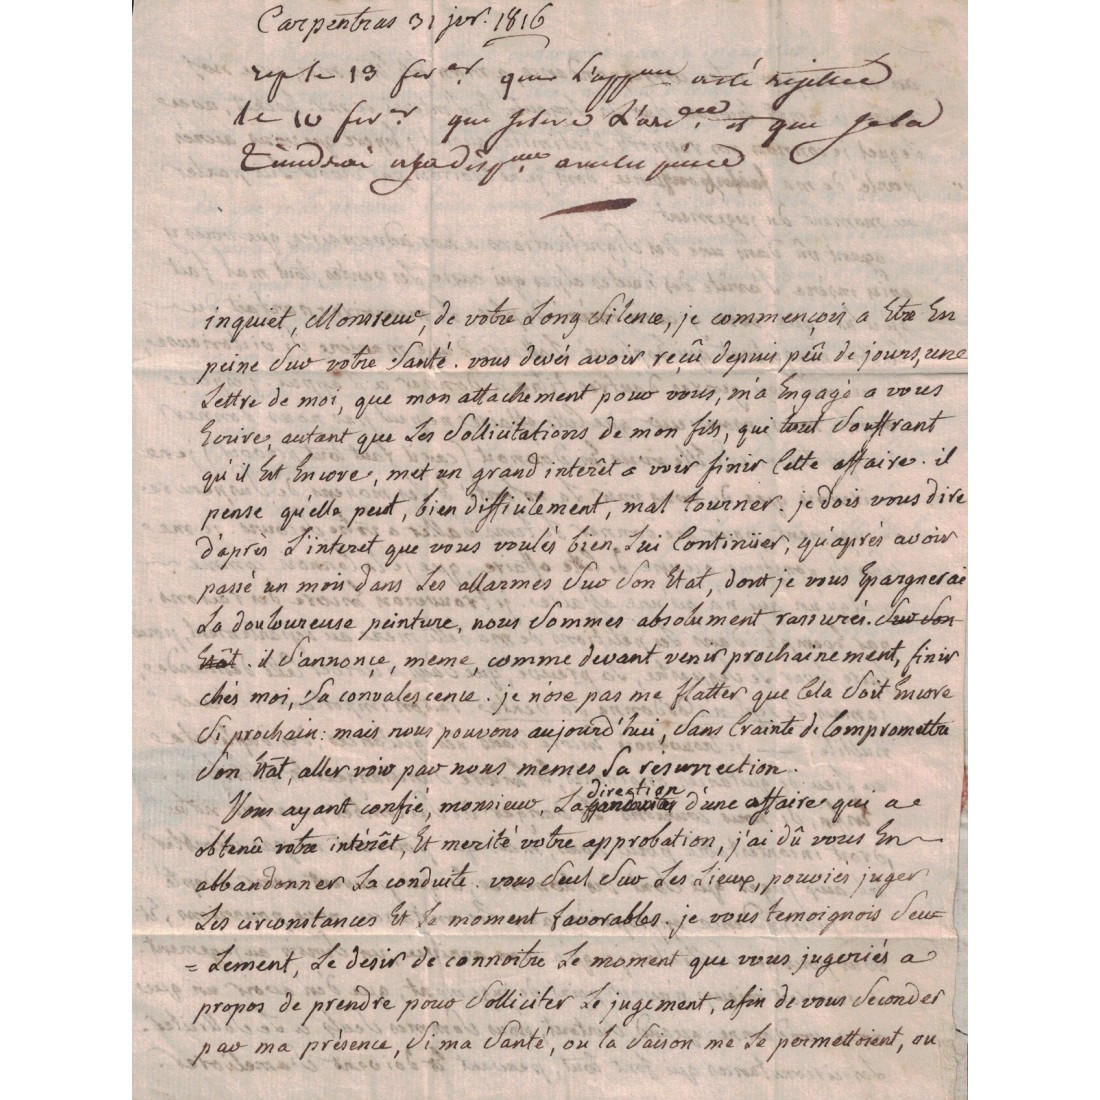 Carpentras 31 jvr. 1816
rep le 13 fevr. que L'appon a été rejettée
le 10 fevr que je leve L'ordce. et que je la
tiendrai a sa dispon avec les pièces
inquiet, Monsieur, de votre Long Silence, je commençois a Etre En
peine Sur votre Santé. vous devés avoir reçû depuis peû de jours, une
Lettre de moi, que mon attachement pour vous, m'a Engagé a vous
Ecrire, autant que Les Sollicitations de mon fils, qui tout Souffrant
qu'il Est Encore, met un grand interêt a voir finir Cette affaire. il
pense qu'elle peut, bien difficilement, mal tourner. je dois vous dire
d'après L'interet que vous voulés bien Lui Continüer, qu'aprés avoir
passé un mois dans Les allarmes Sur Son Etat, dont je vous Epargnerai
La douloureuse peinture, nous Sommes absolument rassurés. Sur Son
Etat. il S'annonce, meme, comme devant venir prochainement, finir
chés moi, Sa convalescence. je n'ose pas me flatter que Cela Soit Encore
Si prochain: mais nous pouvons aujourd'hui, Sans Crainte de Compromettre
Son Etat, aller voir par nous memes Sa resurrection.
direction
Vous ayant confié, monsieur, La d'une affaire qui a
obtenû votre interêt, Et merité votre approbation, j'ai dû vous En
abbandonner La conduite. vous Seul Sur Les Lieux, pouviés juger
Les circonstances Et le moment favorables. je vous temoignois Seu-
=Lement, Le desir de connoitre Le moment que vous jugeriés a
propos de prendre pour Solliciter Le jugement, afin de vous Seconder
par ma présence, Si ma Santé, ou la Saison me Le permettoient, ou